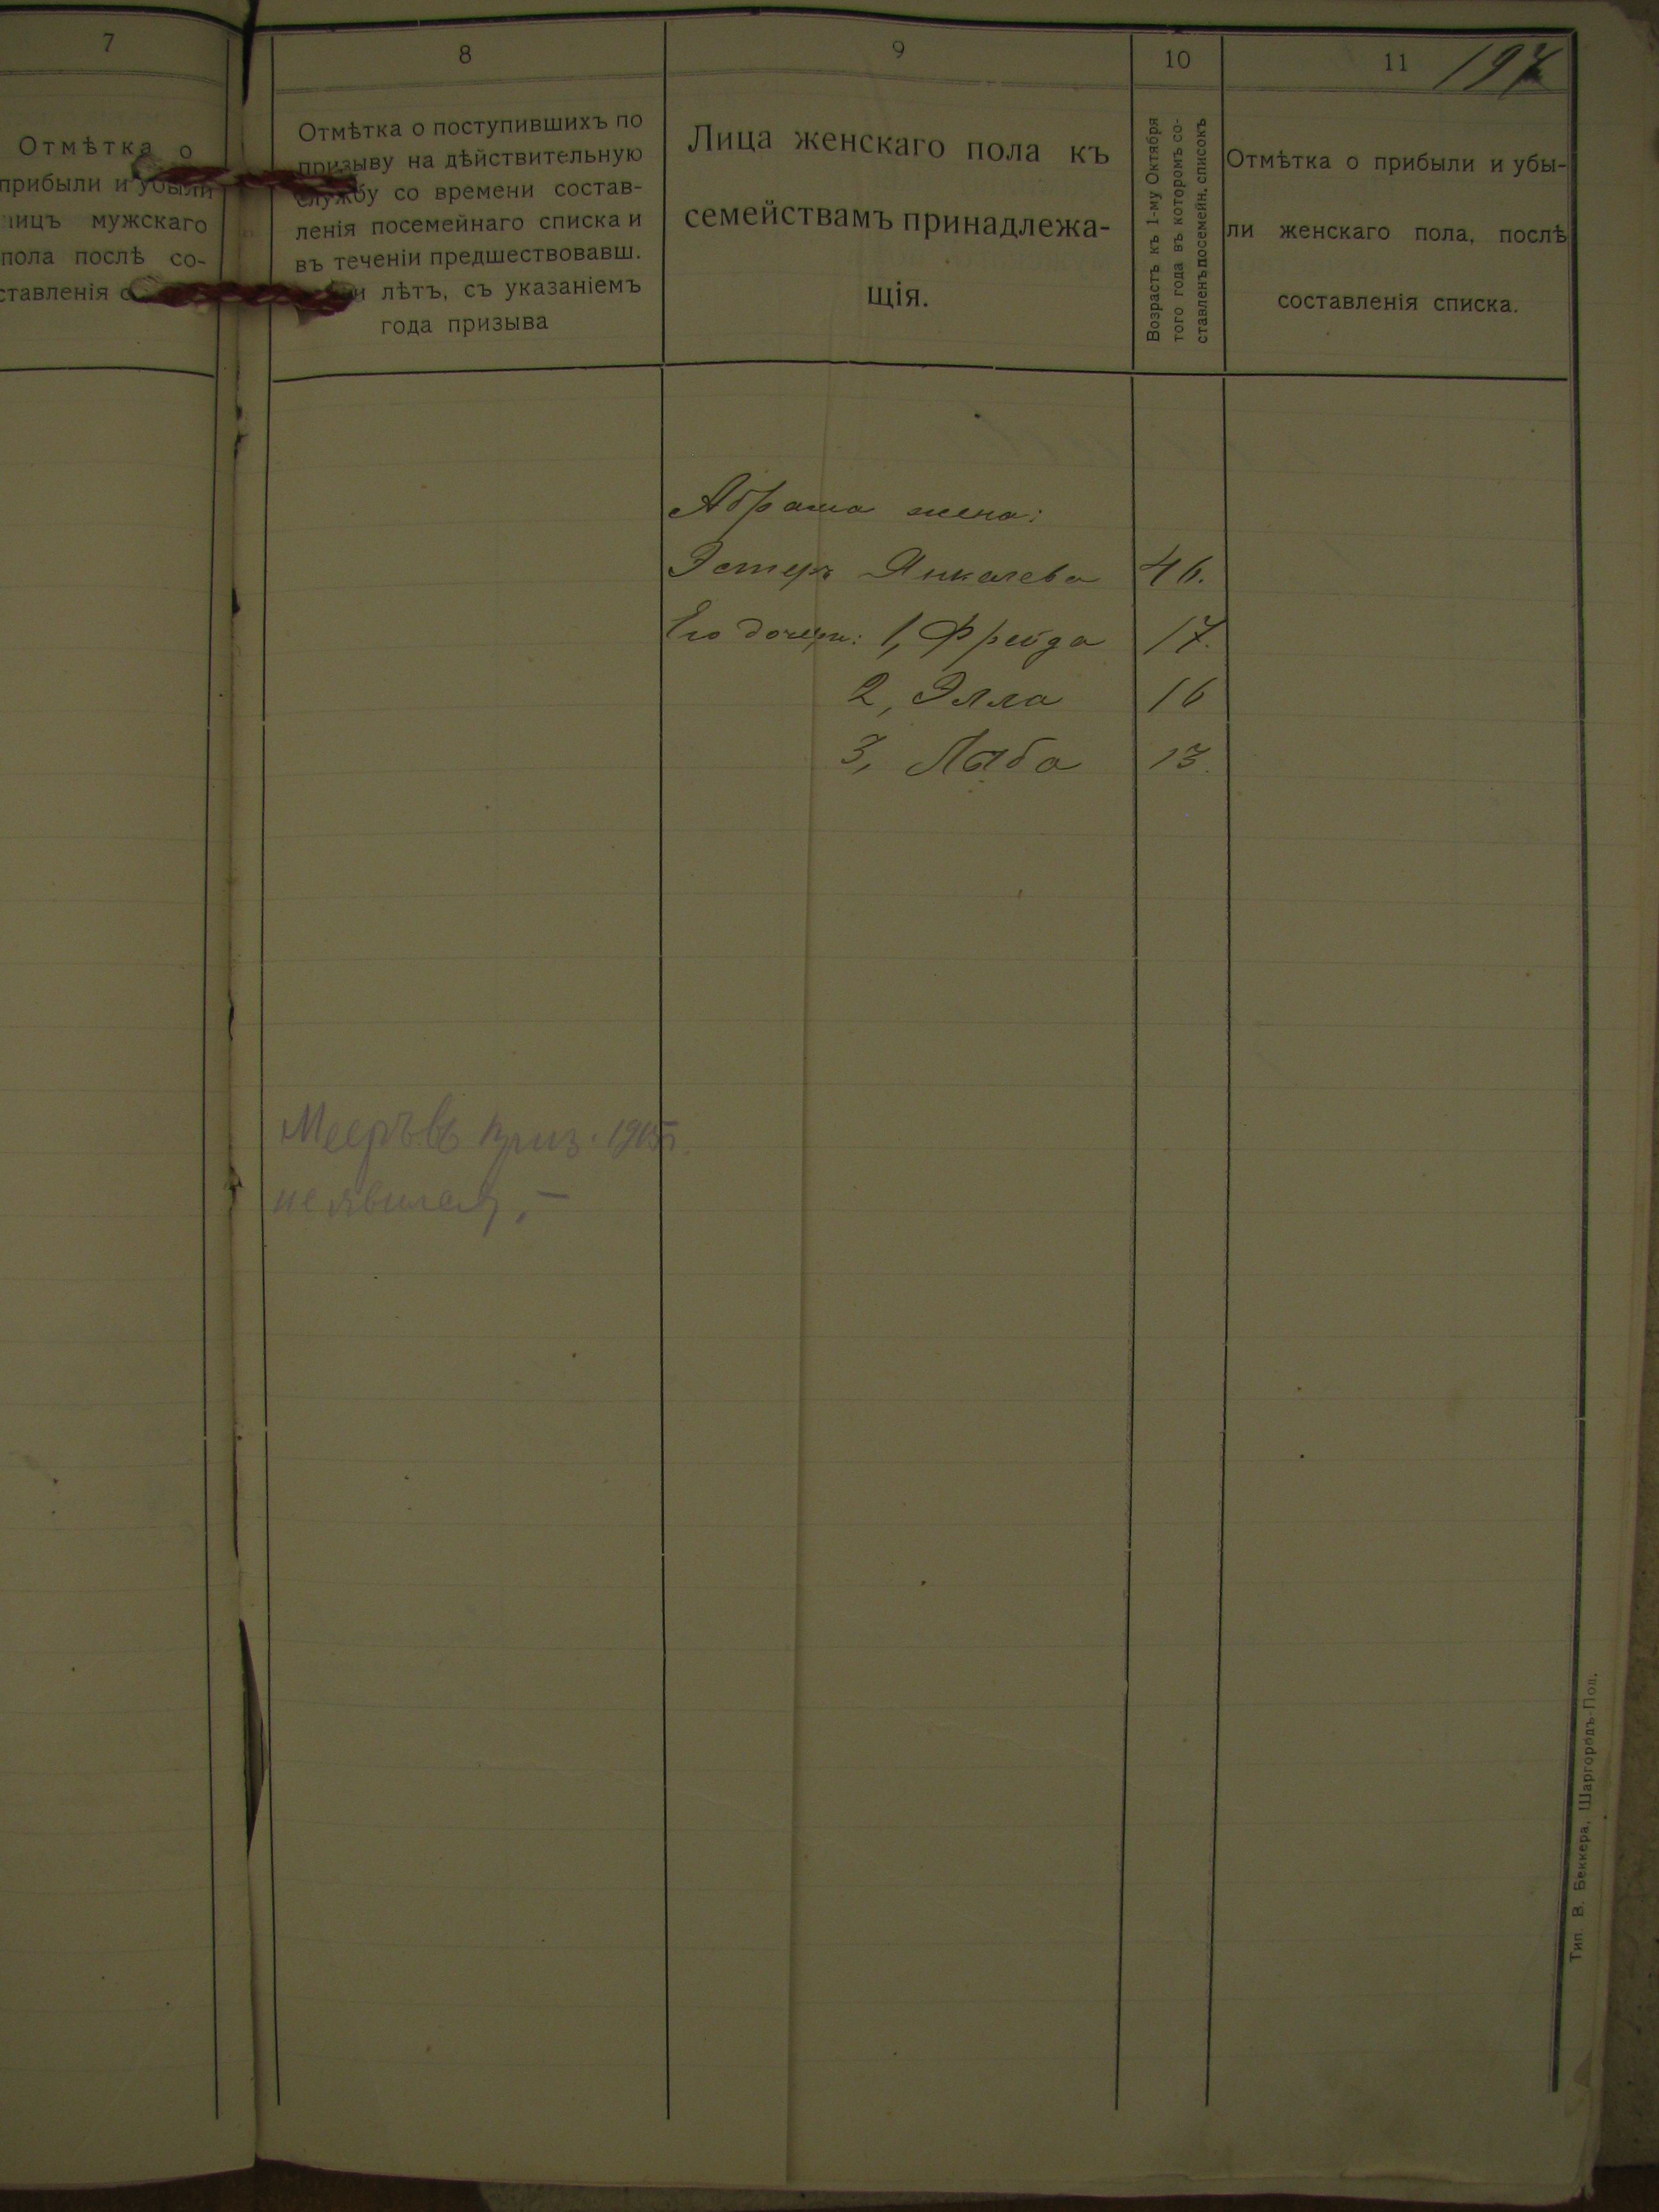 7
Отмѣтка о
прибыли и убыли
лицъ мужскаго
пола послѣ со-
ставленія с
8
Отмѣтка о поступившихъ по
призыву на дѣйствительную
службу со времени состав-
ленія посемейнаго списка и
въ теченіи предшествовавш.
лѣтъ, съ указаніемъ
года призыва
Мееръ въ приз. 1915 г.
не явился. –
9
Лица женскаго пола къ
семействамъ принадлежа-
щія.
Абрама жена:
Эстеръ Янкелева
Его дочери: 1, Фрейда
2, Элла
3,
10
Возрастъ къ 1-му Октября
того года въ которомъ со-
ставленъ посемейн. списокъ
46.
17.
16
13.
11
197
Отмѣтка о прибыли и убы-
ли женскаго пола, послѣ
составленія списка.
Тип. В. Беккера, Шаргородъ-Под.